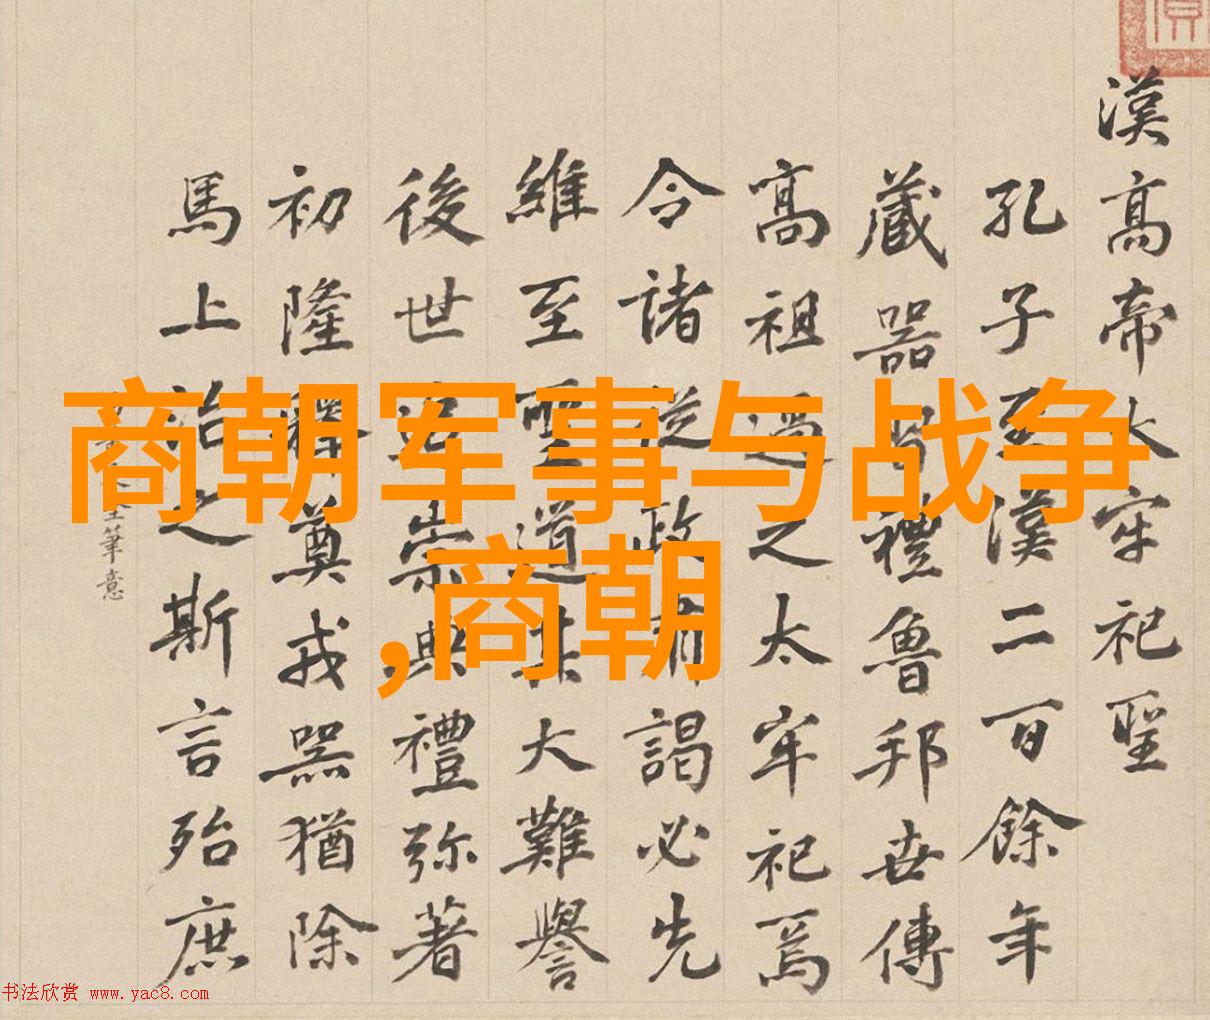 漢高帝太牢祀聖
孔子至漢二百餘年
藏器
禮魯邦世傳
高祖過之太牢祀焉
令諸
從政
謁必先
維至聖道
大難譽
後世
崇典禮弥著
初隆
尊戎器猶除
馬上治之斯言殆庶
筆意
商朝军事与战争
,商朝
书法欣赏 www.yac8.com